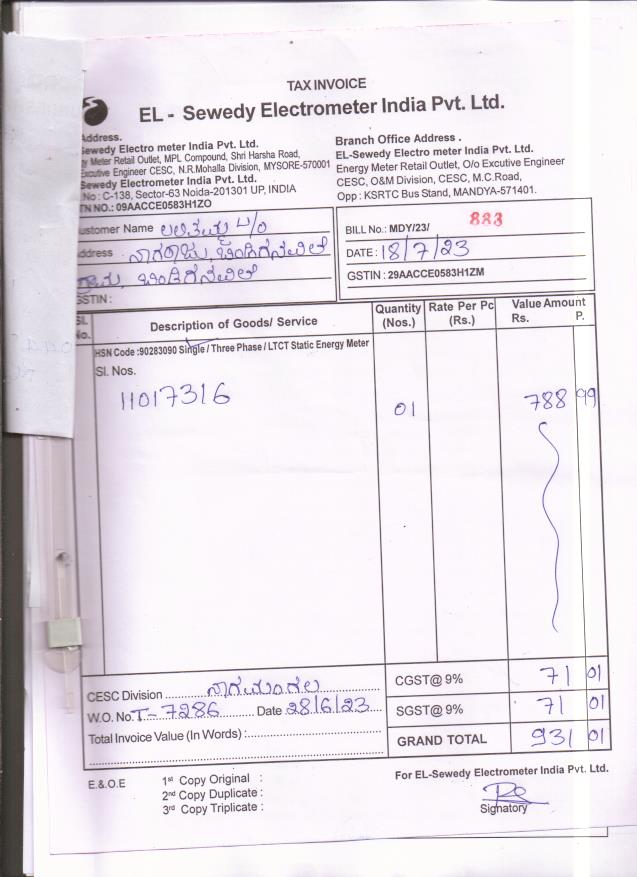 TAX INVOICE
EL - Sewedy Electrometer India Pvt. Ltd.
Address.
Sewedy Electro meter India Pvt. Ltd.
y Meter Retail Outlet, MPL Compound, Shri Harsha Road,
Excutive Engineer CESC, N.R.Mohalla Division, MYSORE-570001
Sewedy Electrometer India Pvt. Ltd.
No : C-138, Sector-63 Noida-201301 UP, INDIA
TN NO.: 09AACCE0583H1ZO
Branch Office Address .
EL-Sewedy Electro meter India Pvt. Ltd.
Energy Meter Retail Outlet, O/o Excutive Engineer
CESC, O&M Division, CESC, M.C.Road,
Opp : KSRTC Bus Stand, MANDYA-571401.
ustomer Name ಲಲಿತಮ್ಮ W/O
ddress ನಾಗರಾಜು,
ಗ್ರಾಮ,
GSTIN :
BILL No.: MDY/23/ 883
DATE : 18/7/23
GSTIN : 29AACCE0583H1ZM
SL. No. Description of Goods/ Service Quantity (Nos.) Rate Per Pc (Rs.) Value Amount Rs. P.
HSN Code :90283090 Single / Three Phase / LTCT Static Energy Meter
Sl. Nos.
11017316 01 788 99
CESC Division ನಾಗಮಂಗಲ
W.O. No. T-7286 Date 28/6/23
Total Invoice Value (In Words) :
CGST@ 9% 71 01
SGST@ 9% 71 01
GRAND TOTAL 931 01
E.& O.E
1st Copy Original :
2nd Copy Duplicate :
3rd Copy Triplicate :
For EL-Sewedy Electrometer India Pvt. Ltd.
Signatory